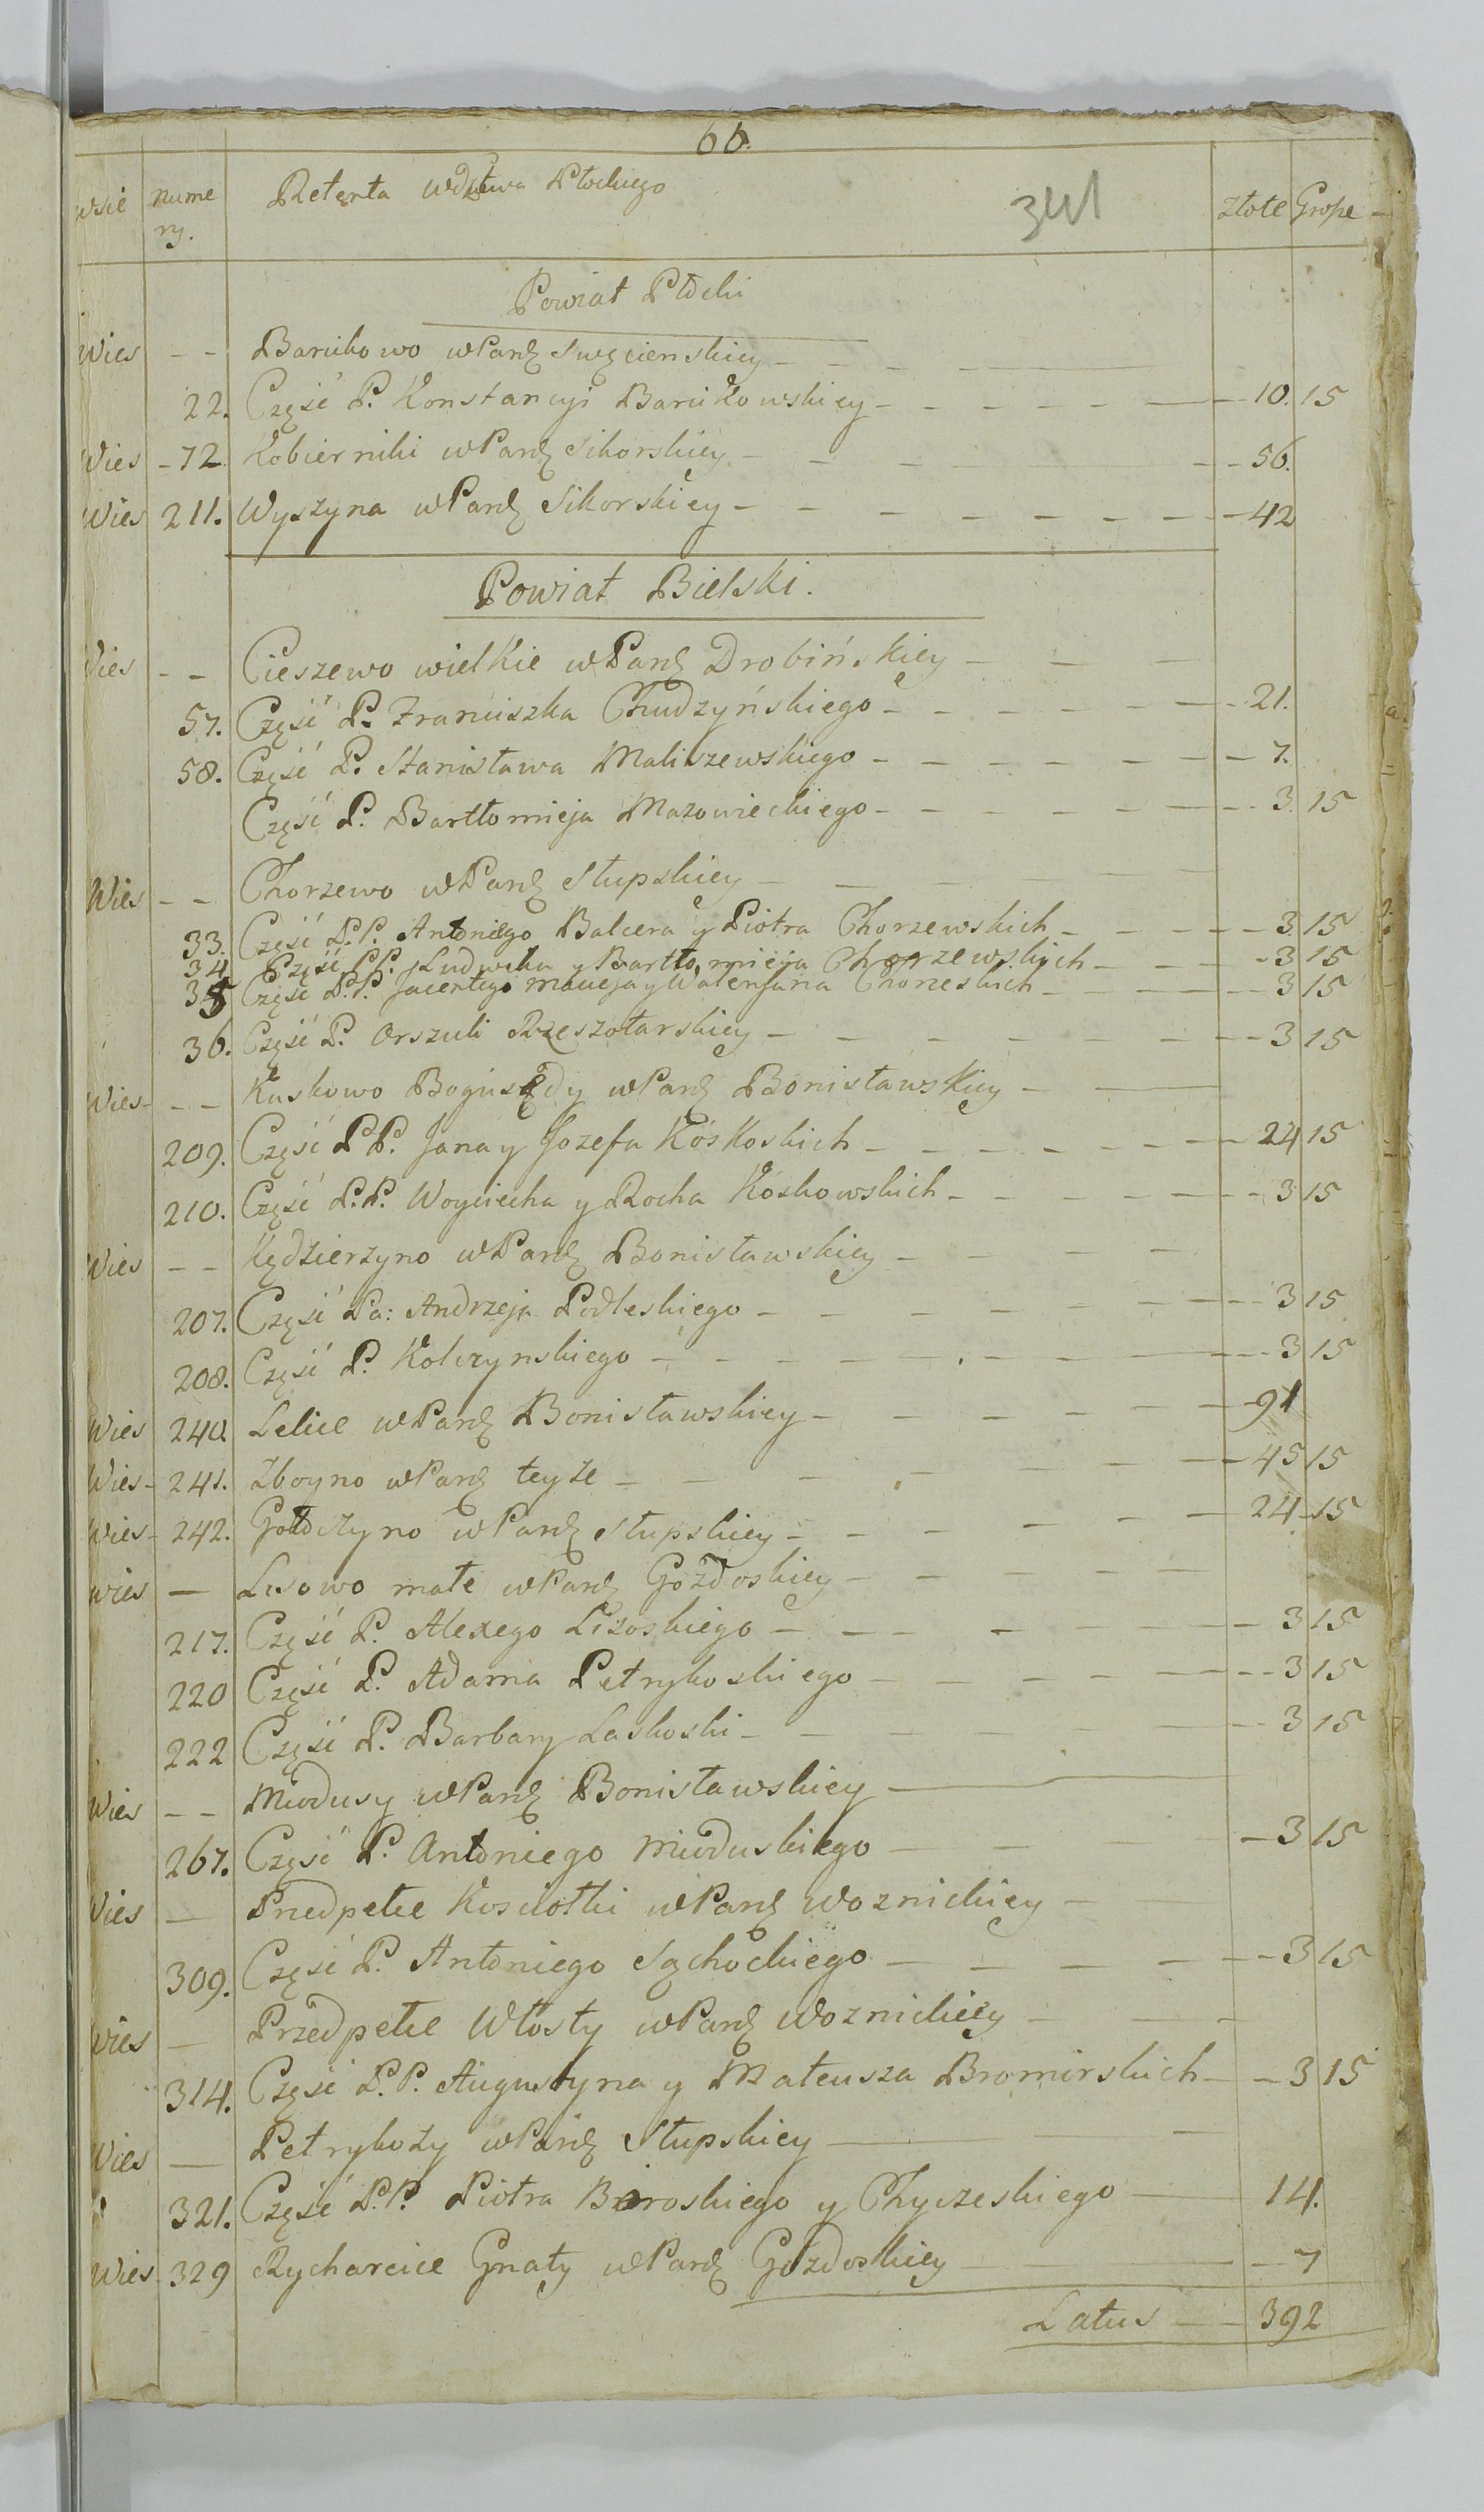 66.
wsie nume Retenta wdztwa Płockiego 341 złote Grosze
ry.
Powiat Płocki
Wies - - Barcikowo w Parỹ Swęcienskiey - - -
22. Część P. Konstancyi Barcikowskiey - - - - - 10. 15
Wies - 72 Kobierniki w Parỹ Sikorskiey - - - - 56.
Wies 211. Wyszyna w Parỹ Sikorskiey - - - - - - - 42
Powiat Bielski.
Wies - - Cieszewo wielkie w Parỹ Drobińskiey - - -
57. Część P. Franciszka Chudzyńskiego - - - - - - 21.
58. Część P. Stanisława Maliszewskiego - - - - - - 7.
Część P. Bartłomieja Mazowieckiego - - - - - - 3 15
Wies - - Chorzewo w Parỹ Słupskiey - - - -
33. Część P.P. Antoniego Balcera y Piotra Chorzewskich - - - - 3 15
34 Część P.P. Ludwika y Bartłomieja Chorzewskich - - - 3 15
35 Część P.P. Jacentego Macieja y Walenfana Chorzeskich - - - 3 15
36. Część P. Orszuli Rzeszotarskiey - - - - - - 3 15
Wies - - - Kuskowo Bogusędy w Parỹ Bonisławskiey - -
209. Część P.P. Jana y Jozefa Kóskoskich - - - - - - 24 15
210. Część P.P. Woyciecha y Rocha Kóskowskich - - - - - 3 15
Wies - - Kędzierzyno w Parỹ Bonisławskiey - - - -
207. Część Pa: Andrzeja Podleskiego - - - - - - 3 15
208. Część P. Kolczynskiego - - - - - - - 3 15
Wies 240. Lelice w Parỹ Bonisławskiey - - - - - - 91
Wies - 241. Zboyno w Parỹ teyże - - - - - - 45 15
Wies - 242. Gołdczyno w Parỹ Słupskiey - - - - - - 24 - 15
wies — Lisowo małe w Parỹ Gozdoskiey - - - - -
217. Część P. Alexego Lisoskiego - - - - - - 3 15
220 Część P. Adama Petrykoskiego - - - - - - 3 15
222 Część P. Barbary Laskoski - - - - - - 3 15
Wies - - Miodusy w Parỹ Bonisławskiey —
267. Część P. Antoniego Mioduskiego — - - - 3 15
Wies — Przedpełce Kosciołki w Parỹ Woznickiey - - -
309. Część P. Antoniego Sąchockiego - - - - - 3 15
Wies — Przedpełce Włosty w Parỹ Woznickiey - - -
314. Część P.P. Augustyna y Mateusza Bromirskich - - 3 15
Wies — Petrykozy w Parỹ Słupskiey — - -
321. Część P.P. Piotra y Chyczeskiego — 14.
Wies - 329 Rycharcice Gnaty w Parỹ Gozdoskiey — - 7
Latus — 392